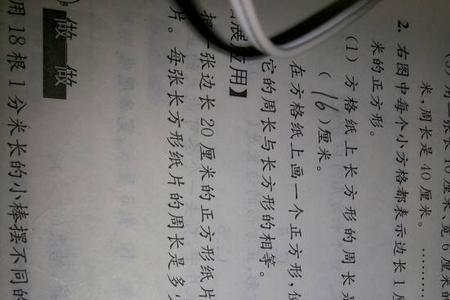 米,周长是10厘米。
2. 右图中每个小方格都表示边长1
米的正方形。
(1) 方格纸上长方形的周长是
(16)厘米。
在方格纸上画一个正方形,
它的周长与长方形的相等。
用】
一张边长20厘米的正方形纸片
片。每张长方形纸片的周长是多
做一做
用18根1分米长的小棒摆不同的